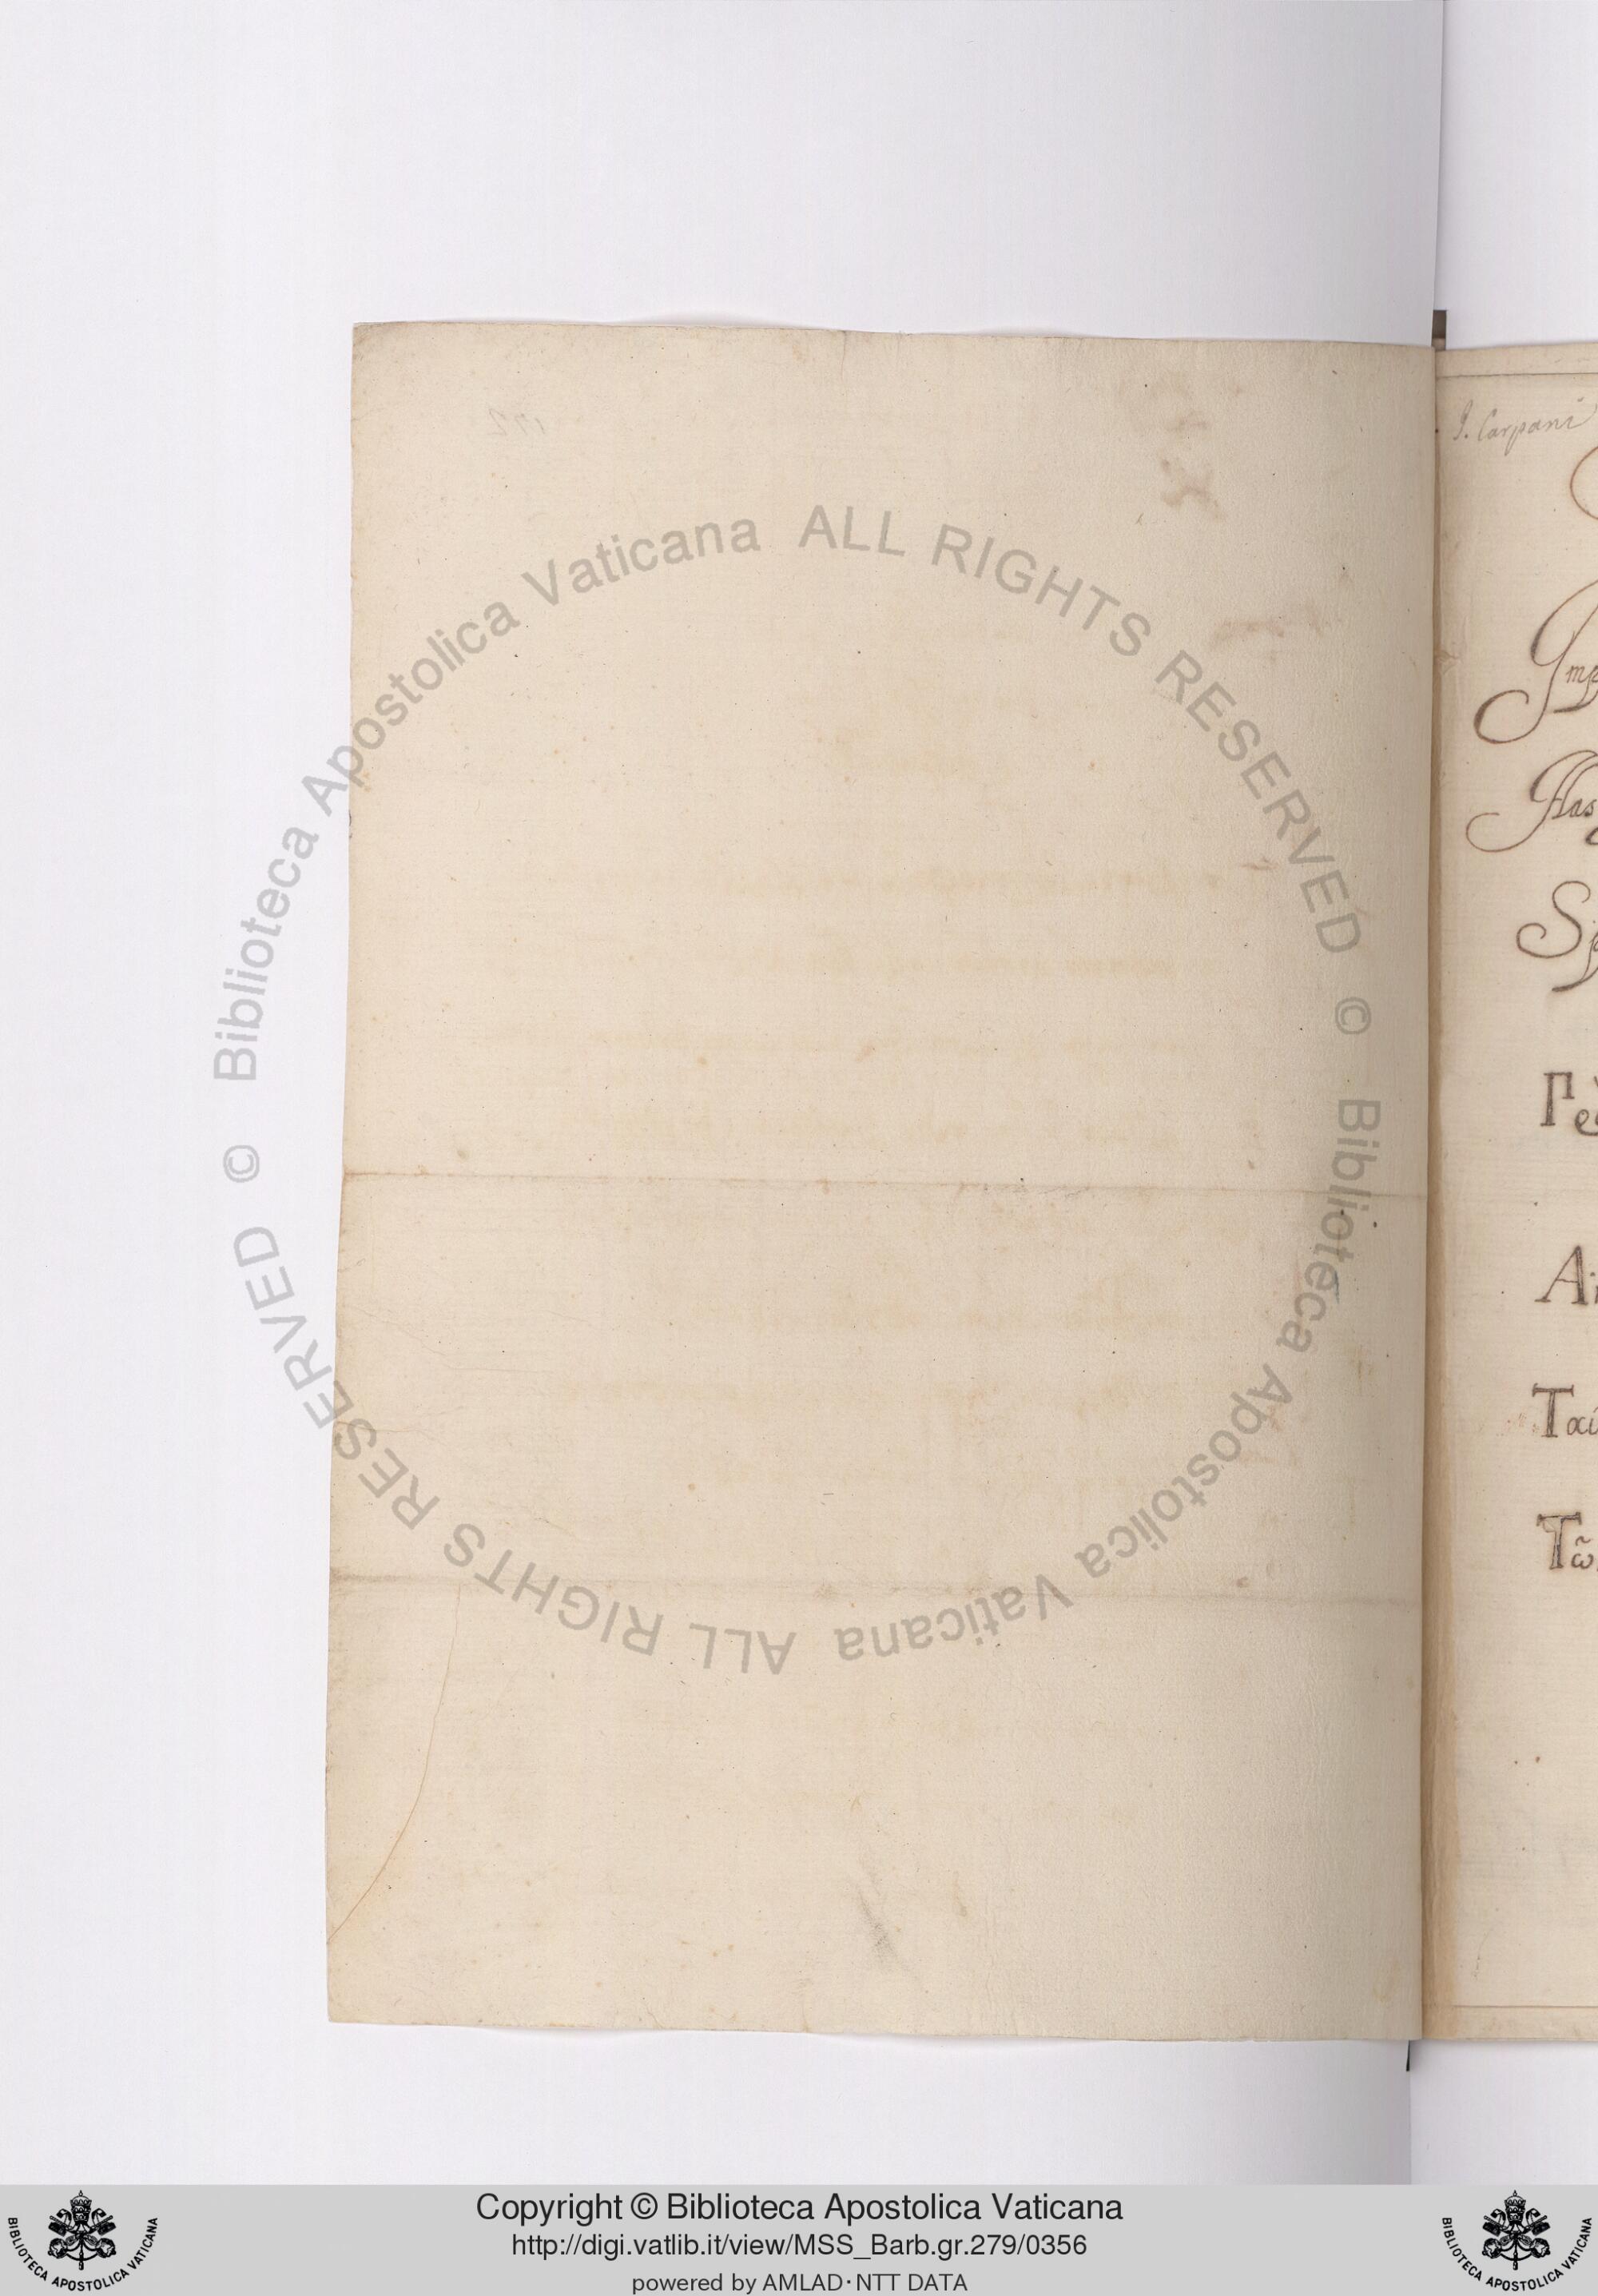 J. Carpani
Imp
Has
Sp
Γε
Α
Ταύ
Τῶ
© Biblioteca Apostolica Vaticana ALL RIGHTS RESERVED
© Biblioteca Apostolica Vaticana ALL RIGHTS RESERVED
Copyright © Biblioteca Apostolica Vaticana
http://digi.vatlib.it/view/MSS_Barb.gr.279/0356
powered by AMLAD·NTT DATA
BIBLIOTECA APOSTOLICA VATICANA
BIBLIOTECA APOSTOLICA VATICANA